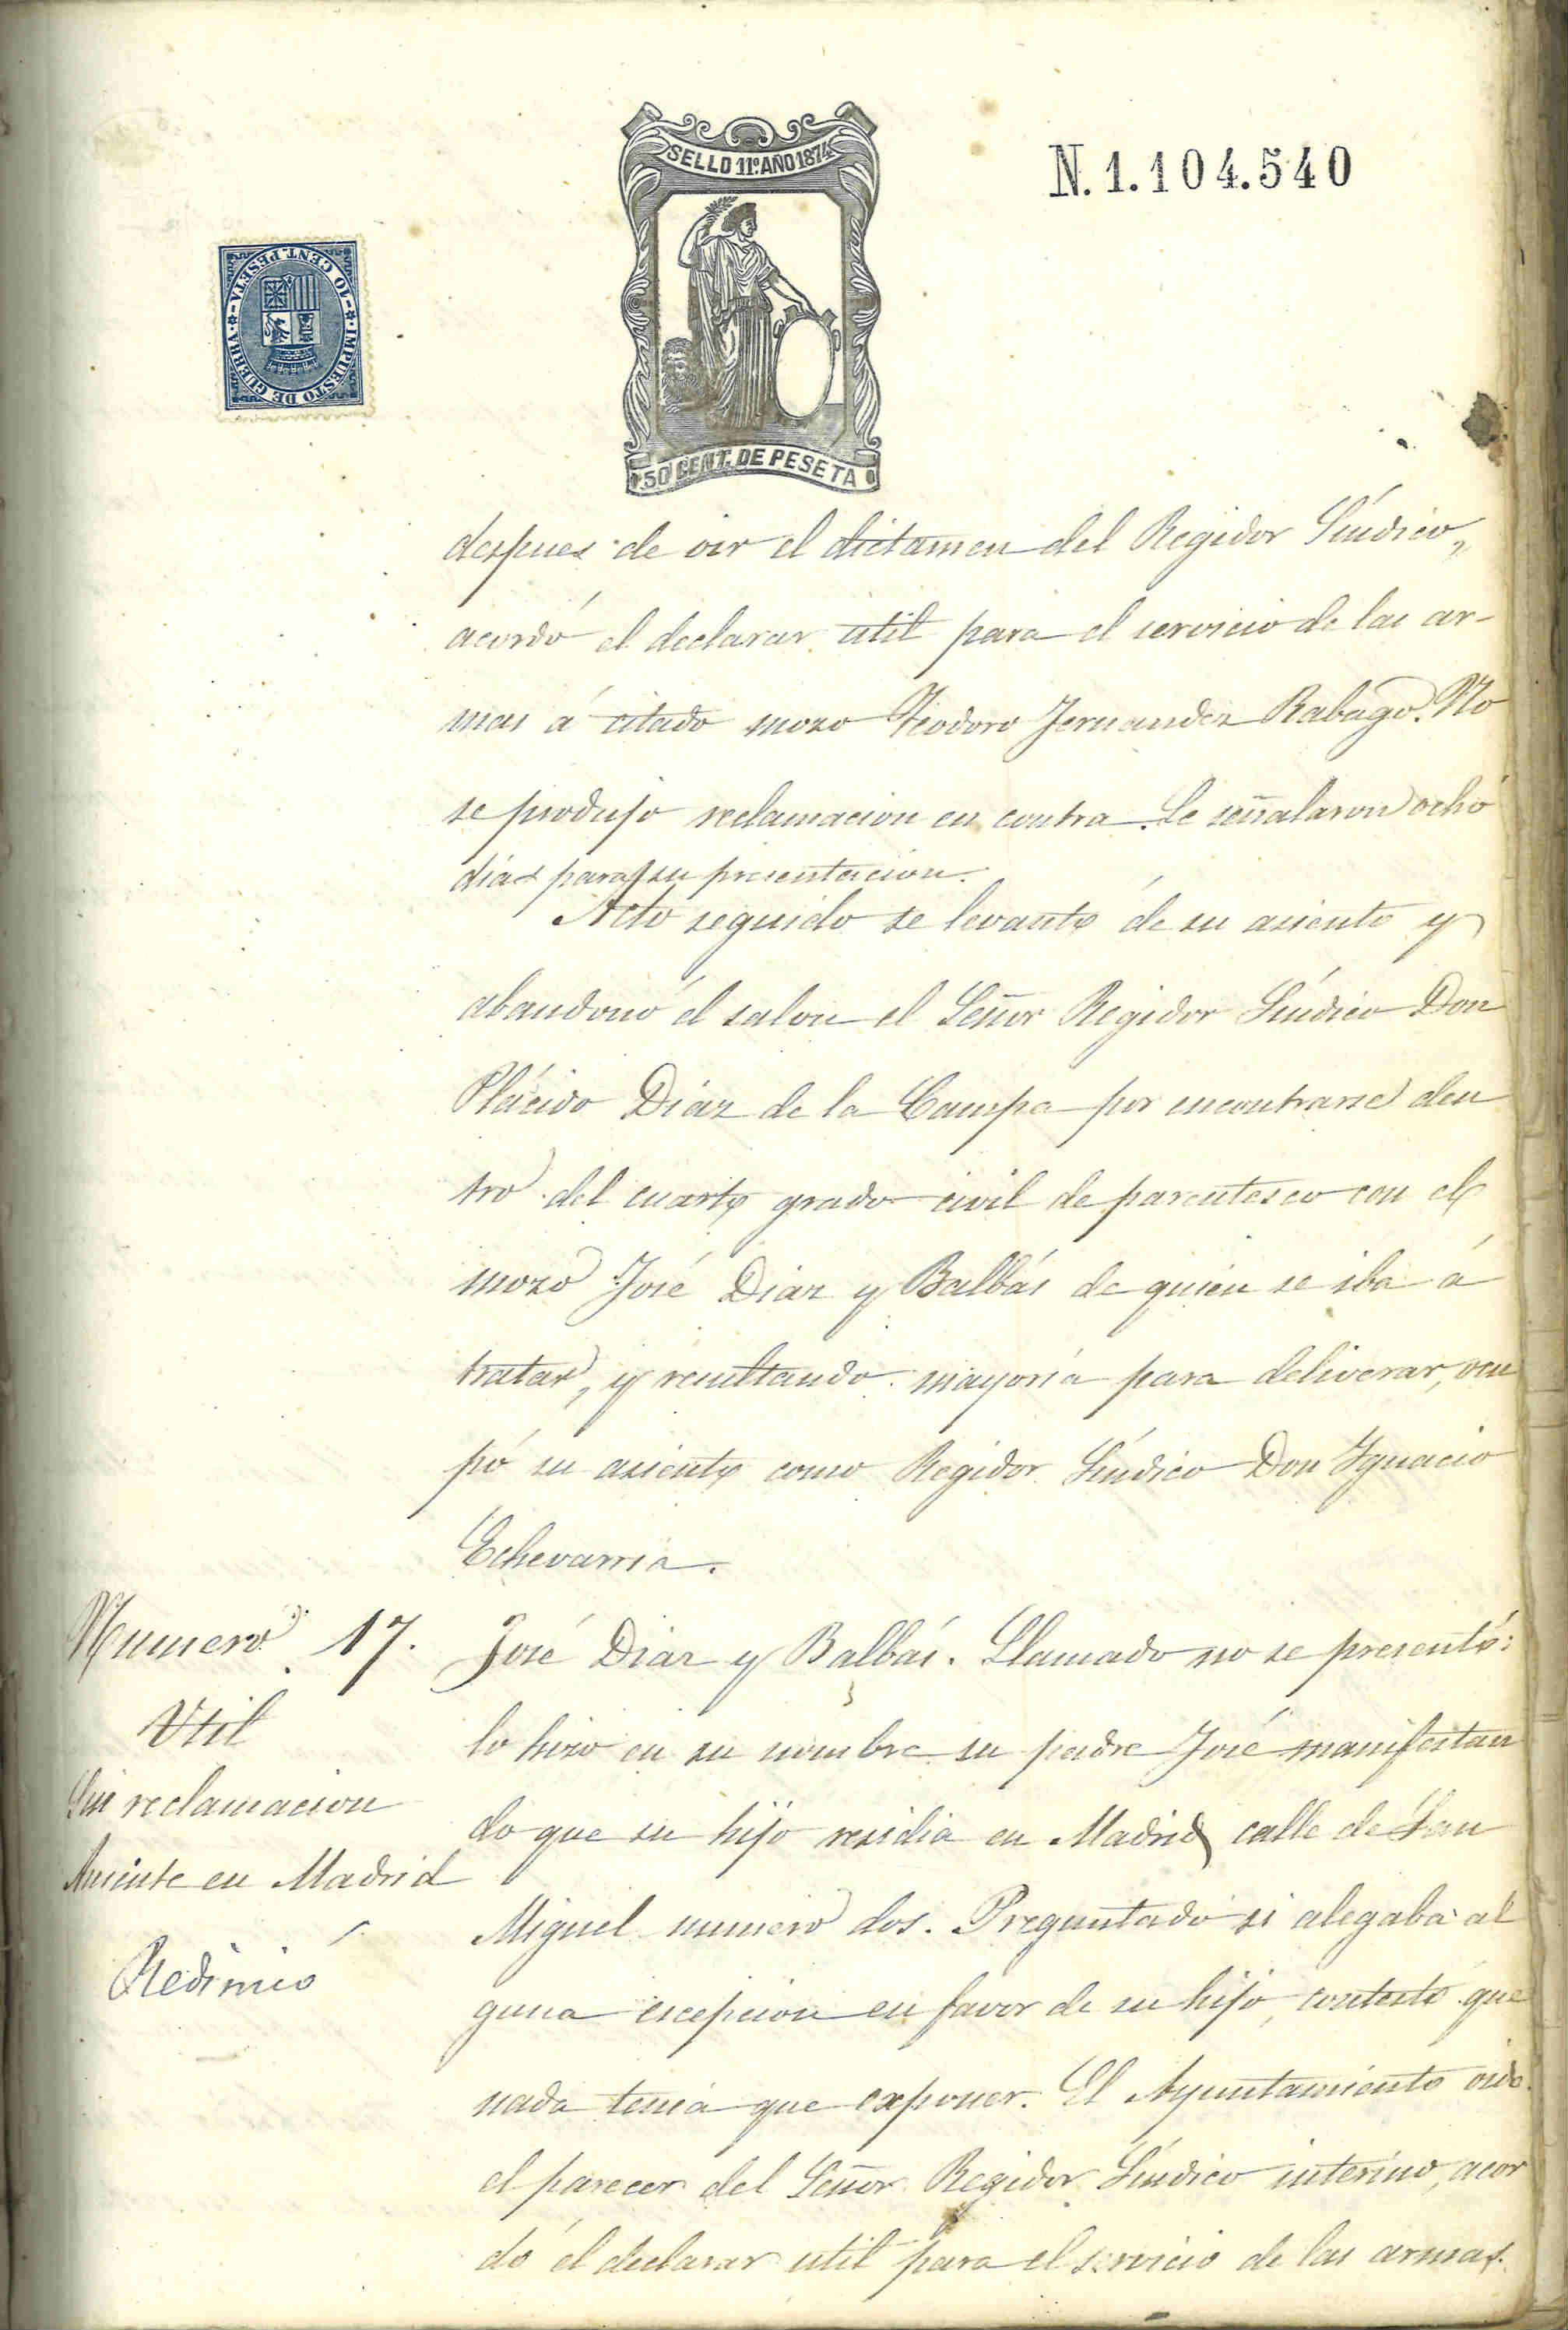 SELLO 11º AÑO 1874
N. 1.104.540
IMPUESTO DE GUERRA
10 CENT. PESETA
50 CENT. DE PESETA
despues de oir el dictamen del Regidor Síndico,
acordó el declarar util para el servicio de las ar-
mas á citado mozo Teodoro Fernandez Rabago. No
se produjo reclamacion en contra. Se señalaron ocho
dias para su presentacion.
Acto seguido se levanto de su asiento y
abandonó el salon el Señor Regidor Síndico Don
Plácido Diaz de la Campa por encontrarse den
tro del cuarto grado civil de parentesco con el
mozo José Diaz y Balbás de quien se iba á
tratar, y resultando mayoría para deliverar, ocu
pó su asiento como Regidor Síndico Don Ygnacio
Echevarria.
Numero 17.
Util
Sin reclamacion
Ausente en Madrid
Redimió
José Diaz y Balbás. Llamado no se presentó:
lo hizo en su nombre su padre José manifestan
do que su hijo residia en Madrid calle de San
Miguel numero dos. Preguntado si alegaba al
guna escepcion en favor de su hijo, contestó que
nada tenia que exponer. El Ayuntamiento oido
el parecer del Señor Regidor Síndico interino, acor
dó el declarar util para el servicio de las armas.